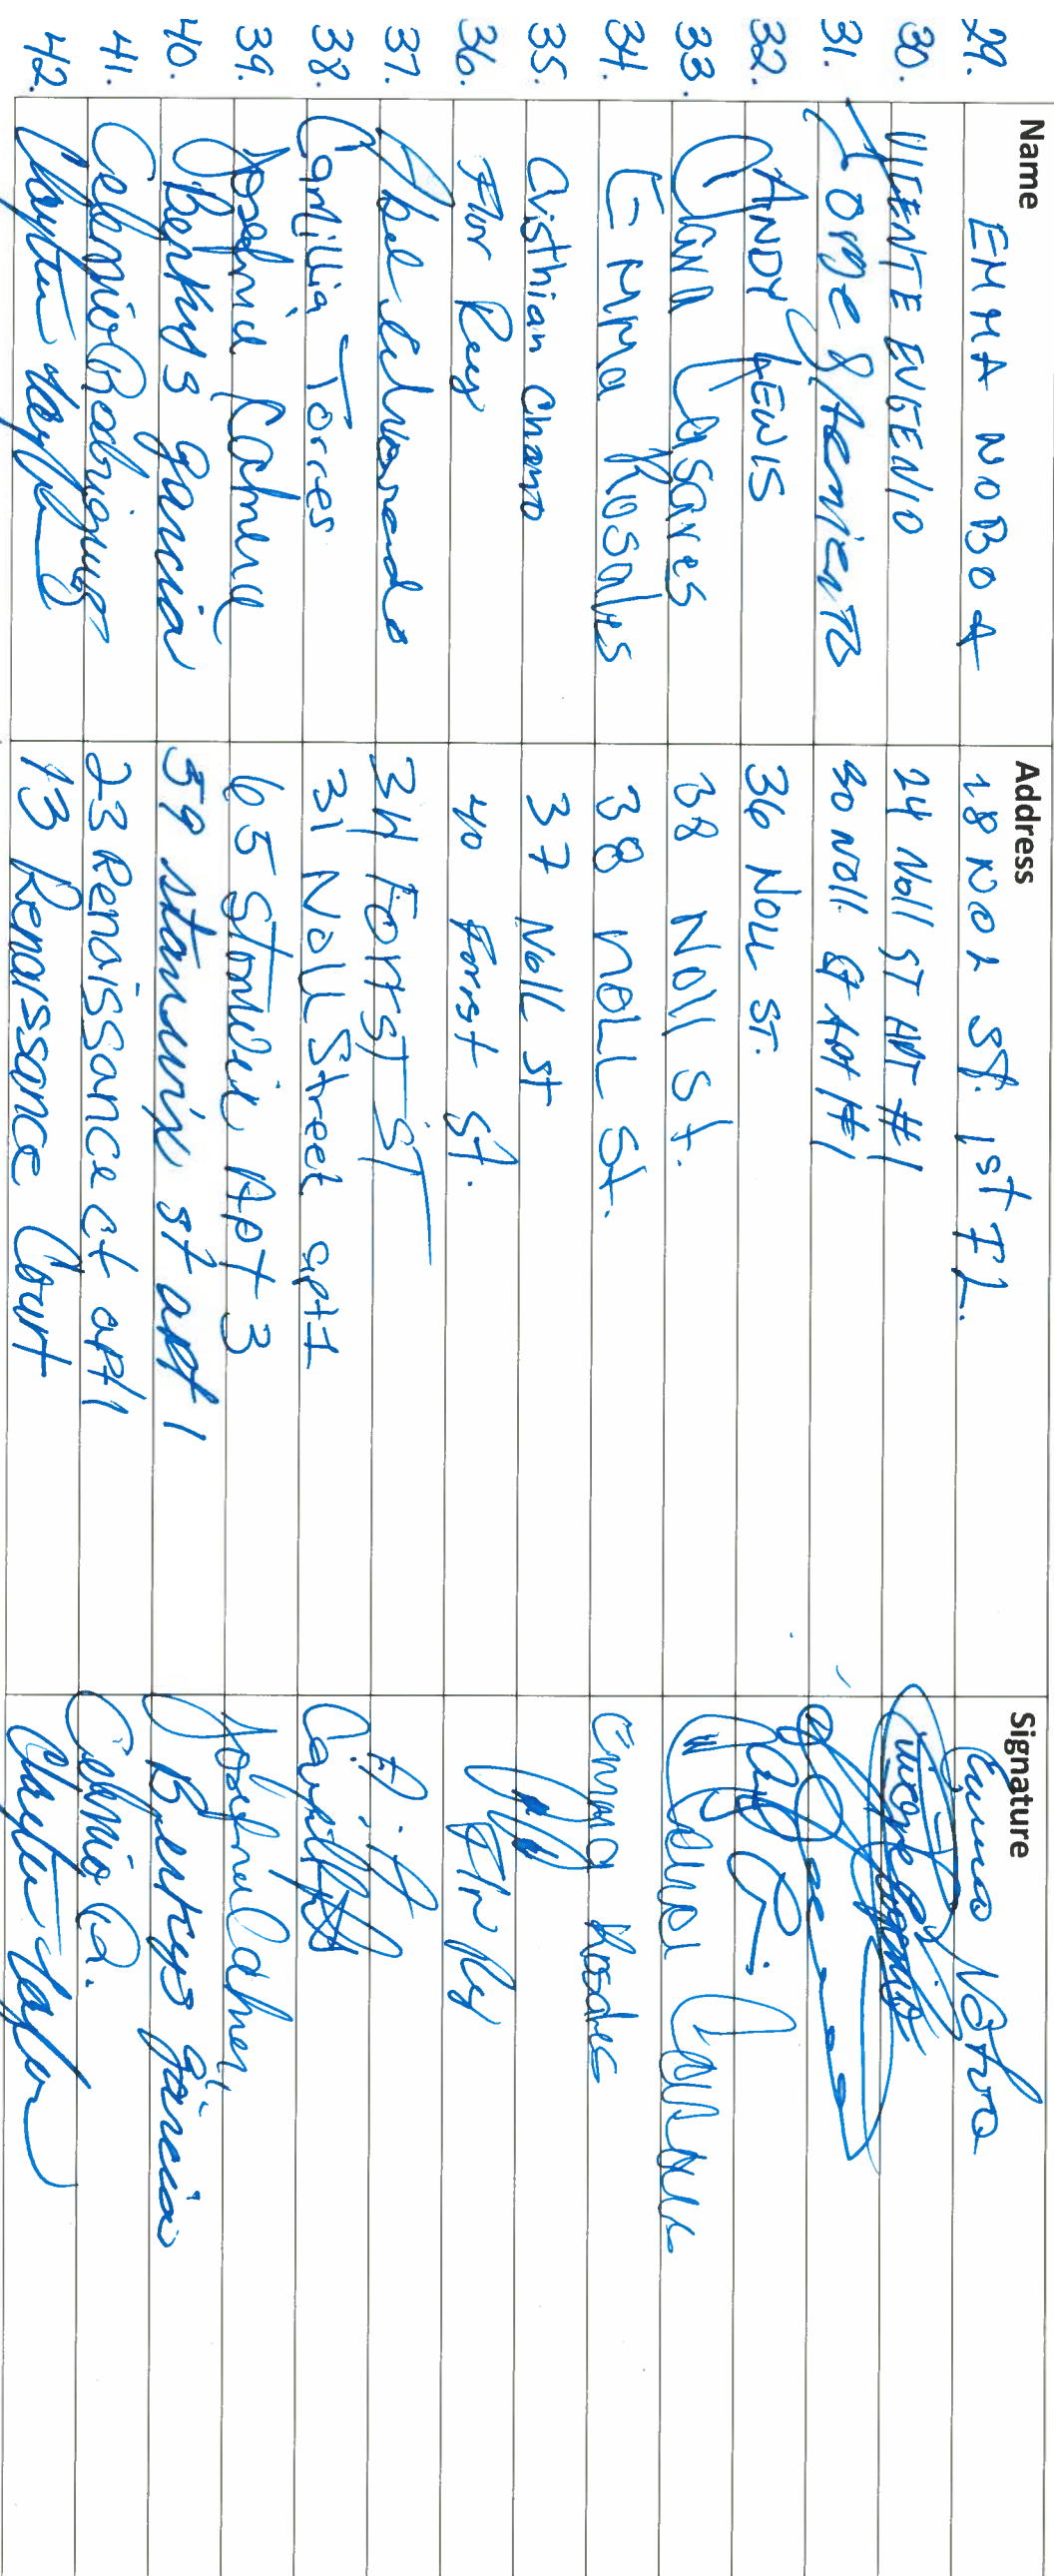 Name Address Signature
29. EMMA NOBOA 28 NOL St. 1st FL. Emma Noboa
30. VICENTE ENGENIO 24 Noll ST APT #1
31. 30 Noll St Apt #1
32. ANDY LEWIS 36 NOLL ST.
33. Casares 38 Noll St.
34. EMMa Rosales 38 NOLL St. Emma Rosales
35. Cristhian Chanto 37 Noll st
36. Flor Rey 40 Forrest St. Flr Rey
37. Abel Alvarado 34 Forrst ST
38. Camillia Torres 31 Noll Street apt 1
39. Josefina 65 Stanwix Apt 3
40. Belkys garcia 59 stanwix st apt 1 Belkys garcia
41. Celenia Rodriguez 23 Renaissance ct apt 1 Celenia R.
42. Clayton Taylor 13 Renaissance Court Clayton Taylor